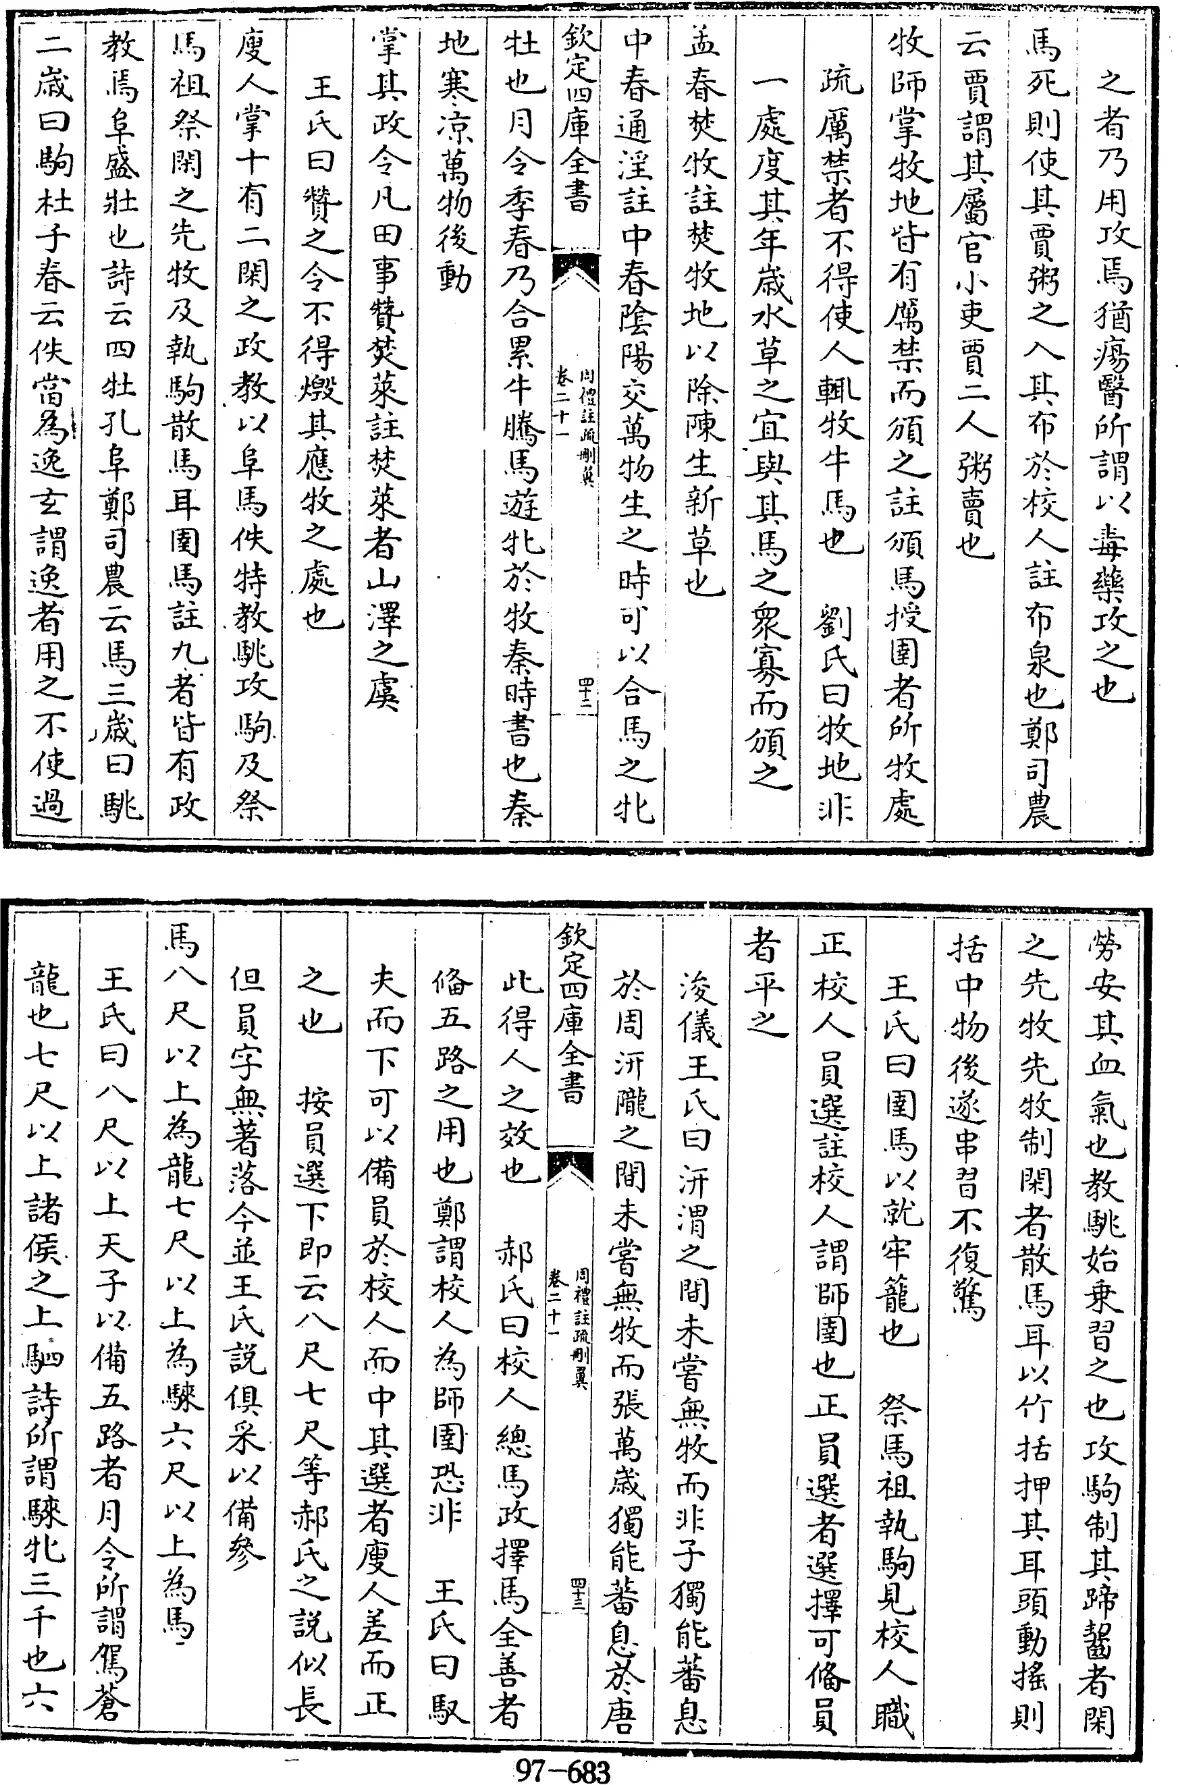 之者乃用攻焉猶瘍醫所謂以毒藥攻之也
馬死則使其賈粥之入其布於校人註布泉也鄭司農
云賈謂其屬官小吏賈二人粥賣也
牧師掌牧地皆有厲禁而頒之註頒馬授圉者所牧處
疏厲禁者不得使人輒牧牛馬也　劉氏曰牧地非
一處度其年歲水草之宜與其馬之衆寡而頒之
孟春焚牧註焚牧地以除陳生新草也
中春通淫註中春陰陽交萬物生之時可以合馬之牝
欽定四庫全書
周禮註疏刪翼
卷二十一
四十二
牡也月令季春乃合累牛騰馬遊牝於牧秦時書也秦
地寒凉萬物後動
掌其政令凡田事贊焚萊註焚萊者山澤之虞
王氏曰贊之令不得燬其應牧之處也
廋人掌十有二閑之政教以阜馬佚特教駣攻駒及祭
馬祖祭閑之先牧及執駒散馬耳圉馬註九者皆有政
教焉阜盛壯也詩云四牡孔阜鄭司農云馬三歲曰駣
二歲曰駒杜子春云佚當為逸玄謂逸者用之不使過
勞安其血氣也教駣始乗習之也攻駒制其蹄齧者閑
之先牧先牧制閑者散馬耳以竹括押其耳頭動搖則
括中物後遂串習不復驚
王氏曰圉馬以就牢籠也　祭馬祖執駒見校人職
正校人員選註校人謂師圉也正員選者選擇可偹員
者平之
浚儀王氏曰汧渭之間未嘗無牧而非子獨能蕃息
於周汧隴之間未嘗無牧而張萬歲獨能蕃息於唐
欽定四庫全書
周禮註疏刪翼
卷二十一
四十三
此得人之效也　郝氏曰校人總馬政擇馬全善者
偹五路之用也鄭謂校人為師圉恐非　王氏曰馭
夫而下可以備員於校人而中其選者廋人差而正
之也　按員選下即云八尺七尺等郝氏之説似長
但員字無著落今並王氏説俱采以備參
馬八尺以上為龍七尺以上為騋六尺以上為馬
王氏曰八尺以上天子以備五路者月令所謂駕蒼
龍也七尺以上諸侯之上駟詩所謂騋牝三千也六
97-683